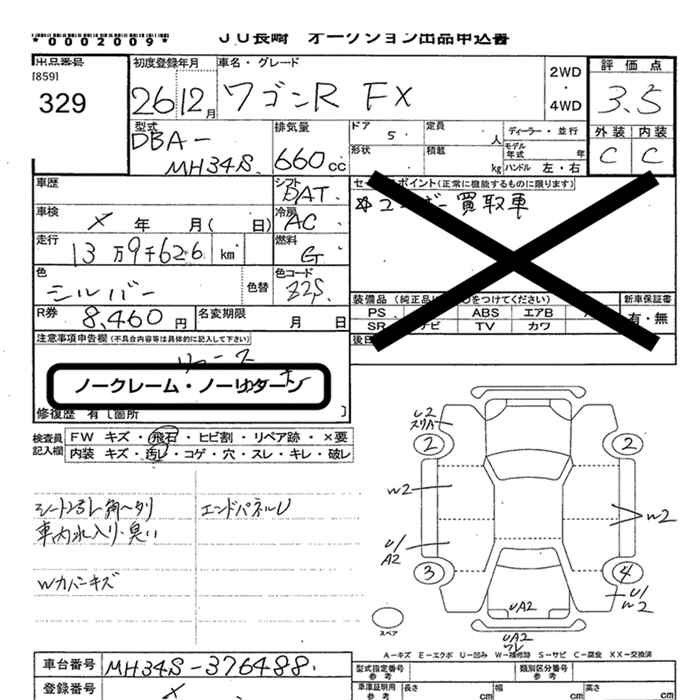 *0002009*
JU長崎 オークション出品申込書
出品番号
[859]
329
初度登録年月
26 12月
車名・グレード
ワゴンR FX
2WD
・
4WD
評価点
3.5
外装 内装
C C
型式
DBA-
MH34S
排気量
660cc
ドア 5
定員 人
形状
積載 kg
ディーラー・並行
モデル年式 年
ハンドル 左・右
車歴
シフト DAT
車検 × 年 月( 日)
冷房 AC
走行 13万9千626 km
燃料 G
色 シルバー
色替
色コード Z2S
R券 8,460円
名変期限 月 日
ポイント(正常に機能するものに限ります)
ユーザー買取車
装備品
をつけてください)
新車保証書
有・無
PS ABS エアB
SR ナビ TV カワ
注意事項申告欄(不具合内容等は具体的に記入して下さい)
ノークレーム・ノーリターン
修復歴 有[箇所 ]
検査員記入欄
FW キズ・飛石・ヒビ割・リペア跡・×要
内装 キズ・汚レ・コゲ・穴・スレ・キレ・破レ
車内水入り・臭い
エンドパネルU
Wカバンキズ
U2
スリA
2
2
W2
W2
U1
A2
3
4
U1
W2
UA2
UA2
ワレ
スペア
A-キズ E-エクボ U-凹み W-補修跡 S-サビ C-腐食 XX-交換済
車台番号 MH34S-376488
型式指定番号 参考
類別区分番号 参考
登録番号 ×
車庫証明用 参考
長さ cm
幅 cm
高さ cm